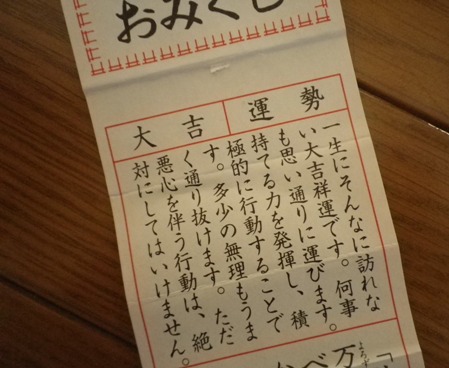 おみくじ
運勢
大吉
一生にそんなに訪れな
い大吉祥運です。何事
も思い通りに運びます。
持てる力を発揮し、積
極的に行動することで
す。多少の無理もうま
く通り抜けます。ただ
悪心を伴う行動は、絶
対にしてはいけません。